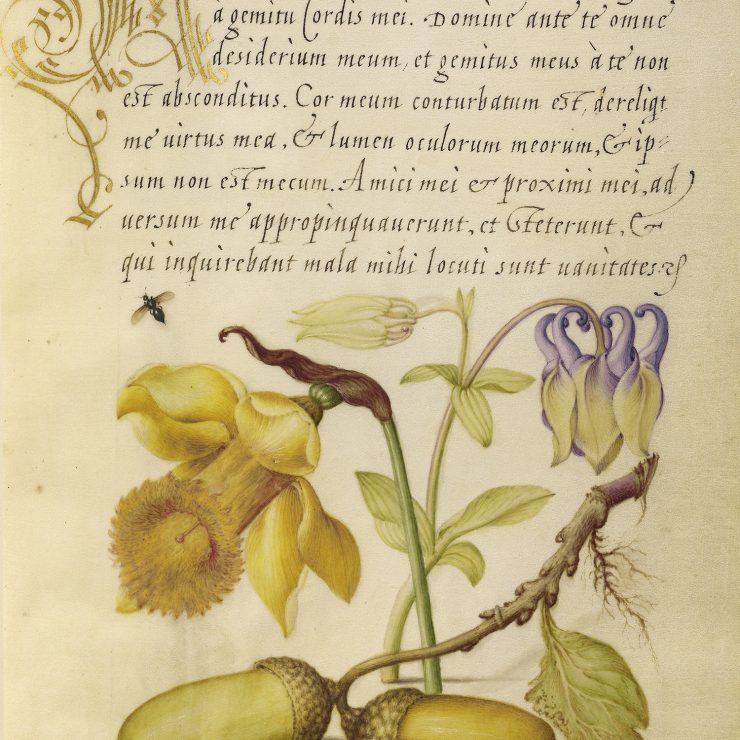 à gemitu Cordis mei. Domine ante te omne
desiderium meum, et gemitus meus à te non
est absconditus. Cor meum conturbatum est, dereliqt
me uirtus mea, & lumen oculorum meorum, & ip-
sum non est mecum. Amici mei & proximi mei, ad
uersum me appropinquauerunt, et steterunt, &
qui inquirebant mala mihi locuti sunt uanitates